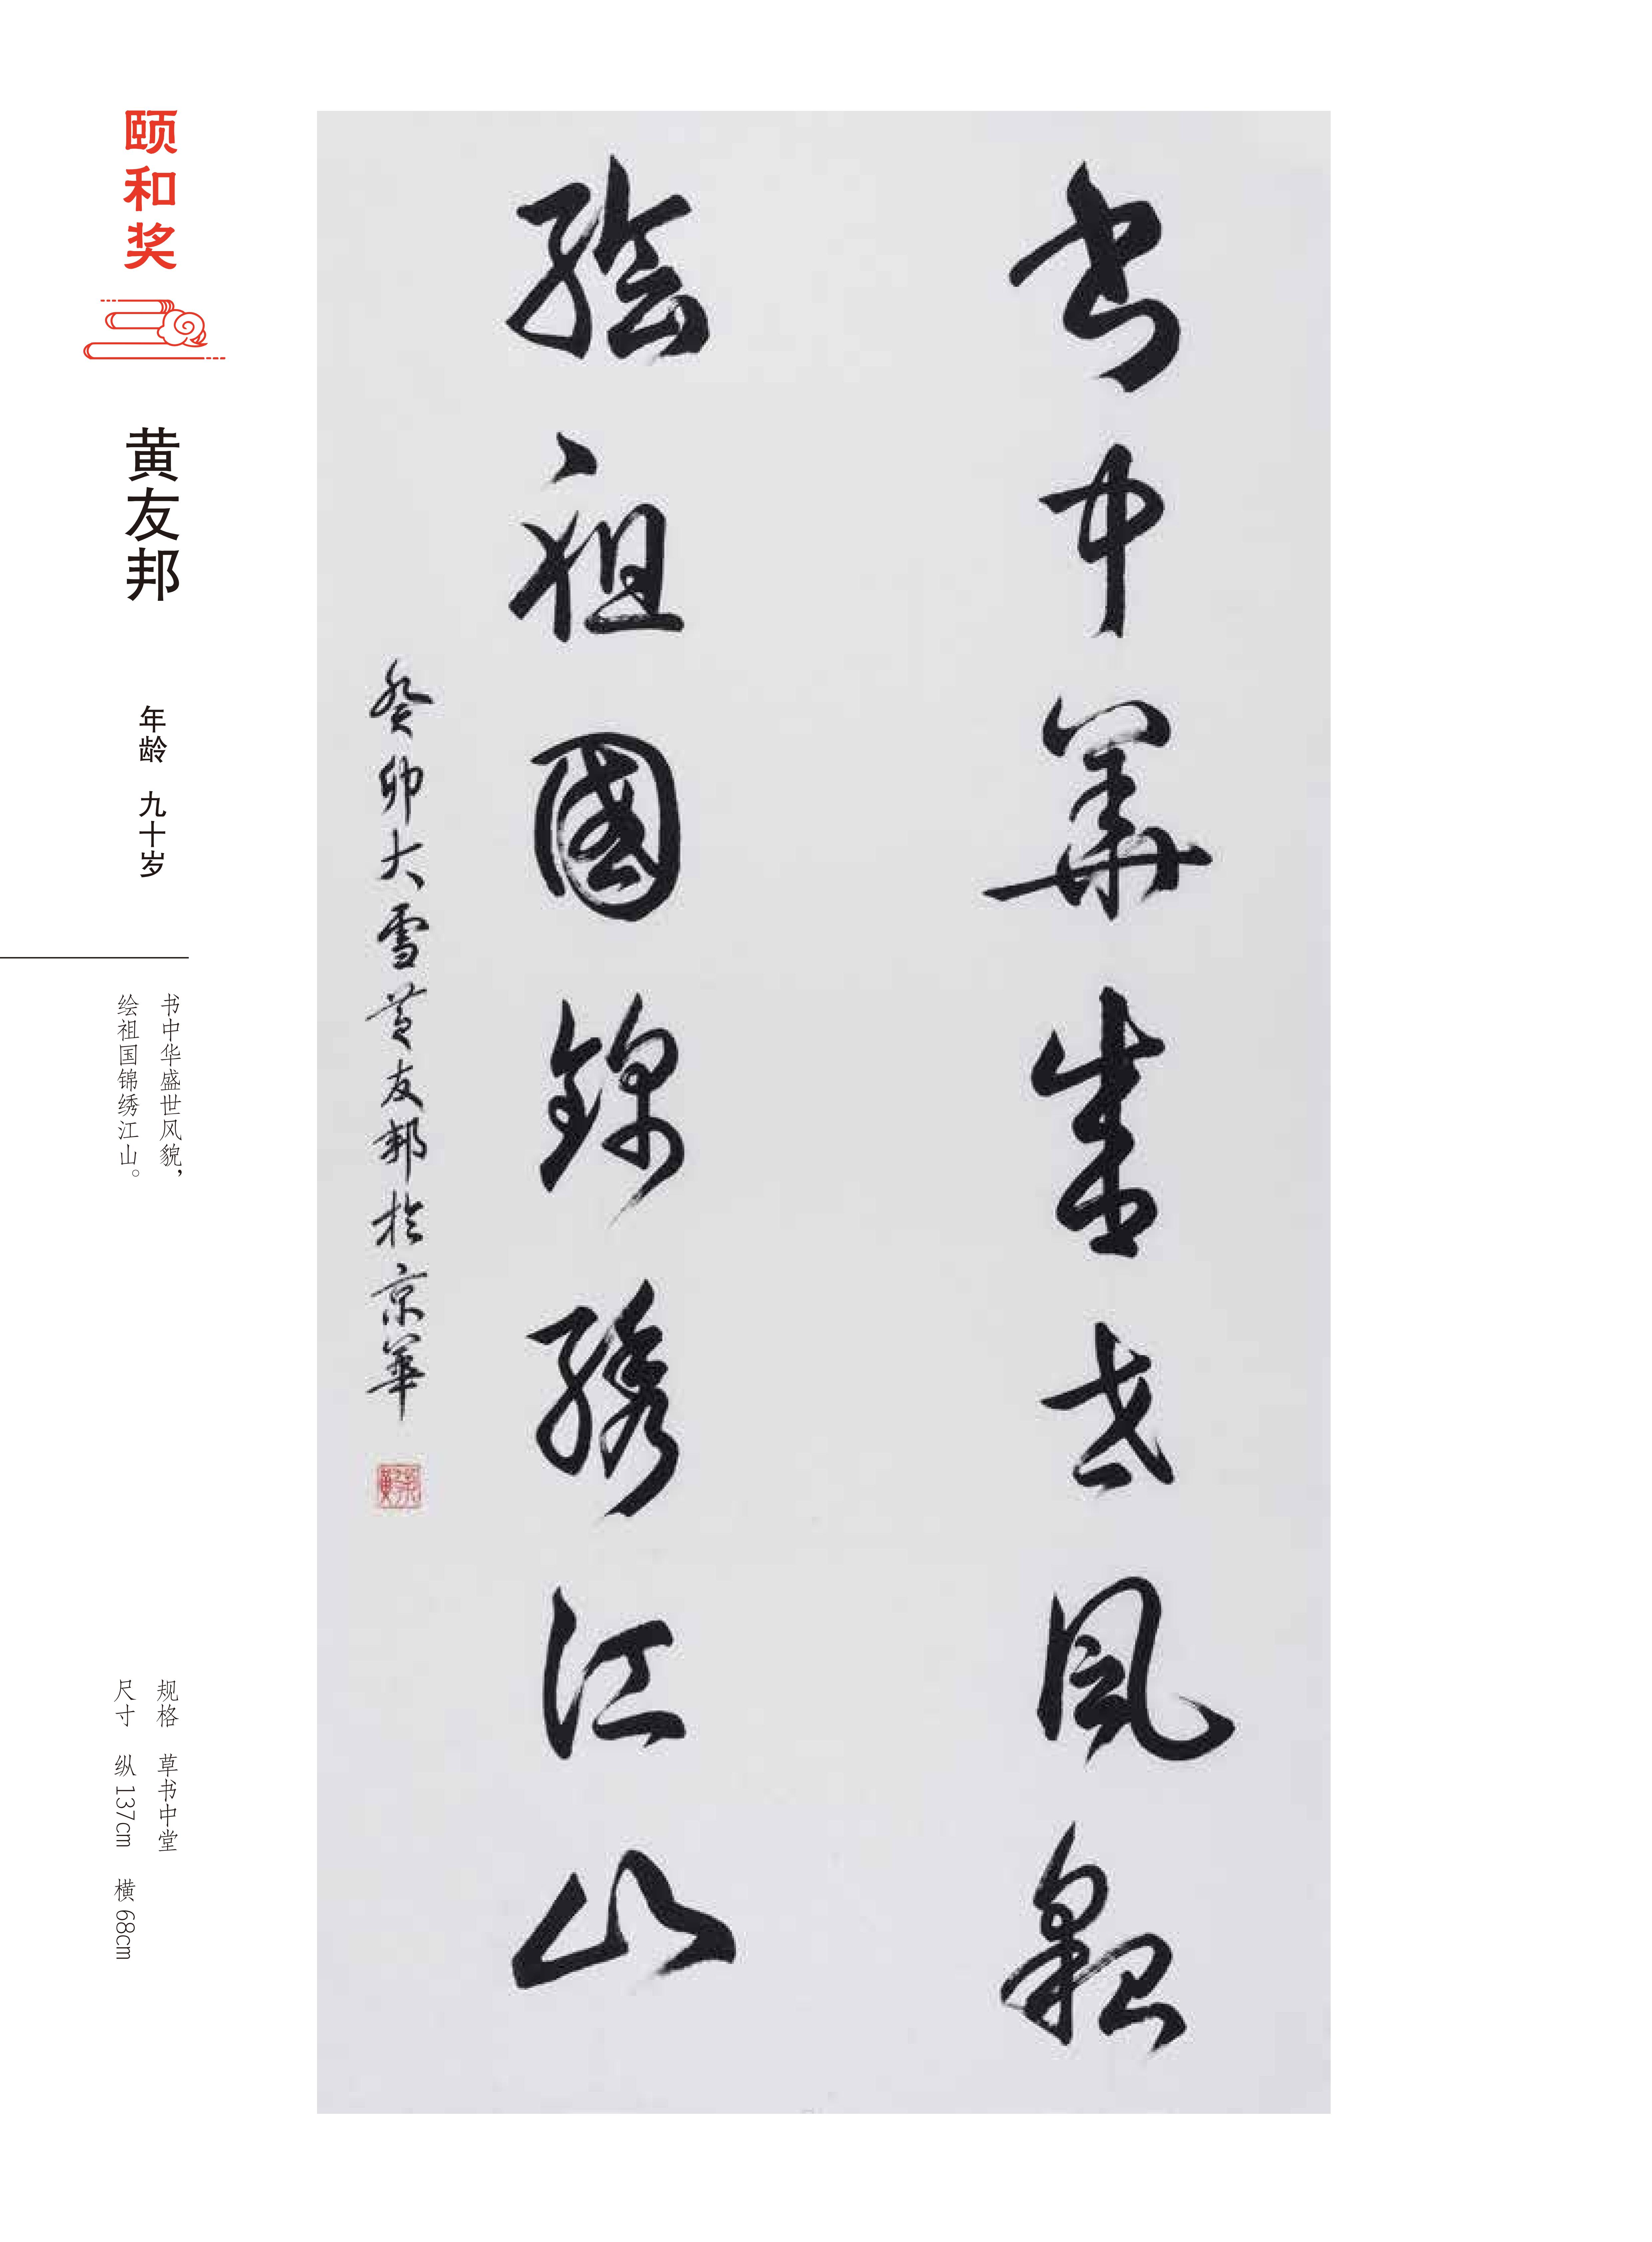 颐和奖
黄友邦
年龄 九十岁
书中华盛世风貌，
绘祖国锦绣江山。
规格 草书中堂
尺寸 纵137cm 横68cm
书中華盛世风貌
绘祖國錦綉江山
癸卯大雪黄友邦於京華